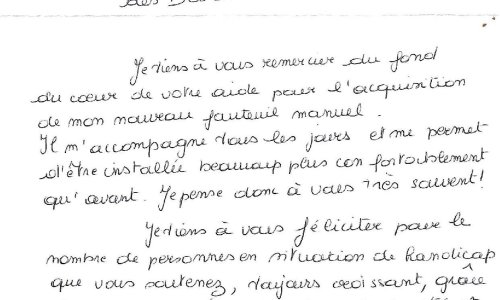 des
Je tiens à vous remercier du fond
du cœur de votre aide pour l'acquisition
de mon nouveau fauteuil manuel.
Il m'accompagne tous les jours et me permet
d'être installée beaucoup plus confortablement
qu'avant. Je pense donc à vous très souvent!
Je tiens à vous féliciter pour le
nombre de personnes en situation de handicap
que vous soutenez, toujours croissant, grâce